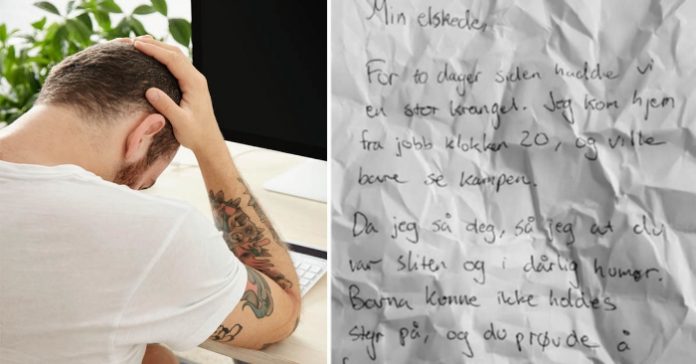 Min elskede,
For to dager siden hadde vi
en stor krangel. Jeg kom hjem
fra jobb klokken 20, og ville
bare se kampen.
Da jeg så deg, så jeg at du
var sliten og i dårlig humør.
Barna kunne ikke holdes
styr på, og du prøvde å